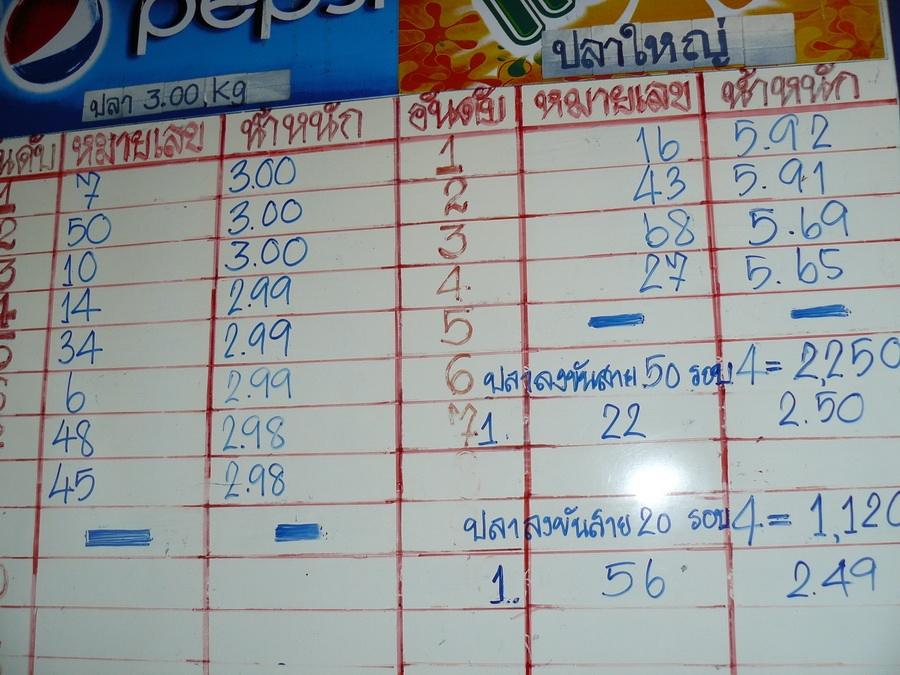 pepsi
ปลา 3.00 Kg
ปลาใหญ่
อันดับ หมายเลข น้ำหนัก
1 7 3.00
2 50 3.00
3 10 3.00
4 14 2.99
34 2.99
6 2.99
48 2.98
45 2.98
อันดับ หมายเลข น้ำหนัก
1 16 5.92
2 43 5.91
3 68 5.69
4 27 5.65
5
6 ปลาลงขันสาย 50 รอบ 4 = 2,250
7 1. 22 2.50
ปลาลงขันสาย 20 รอบ 4 = 1,120
1. 56 2.49